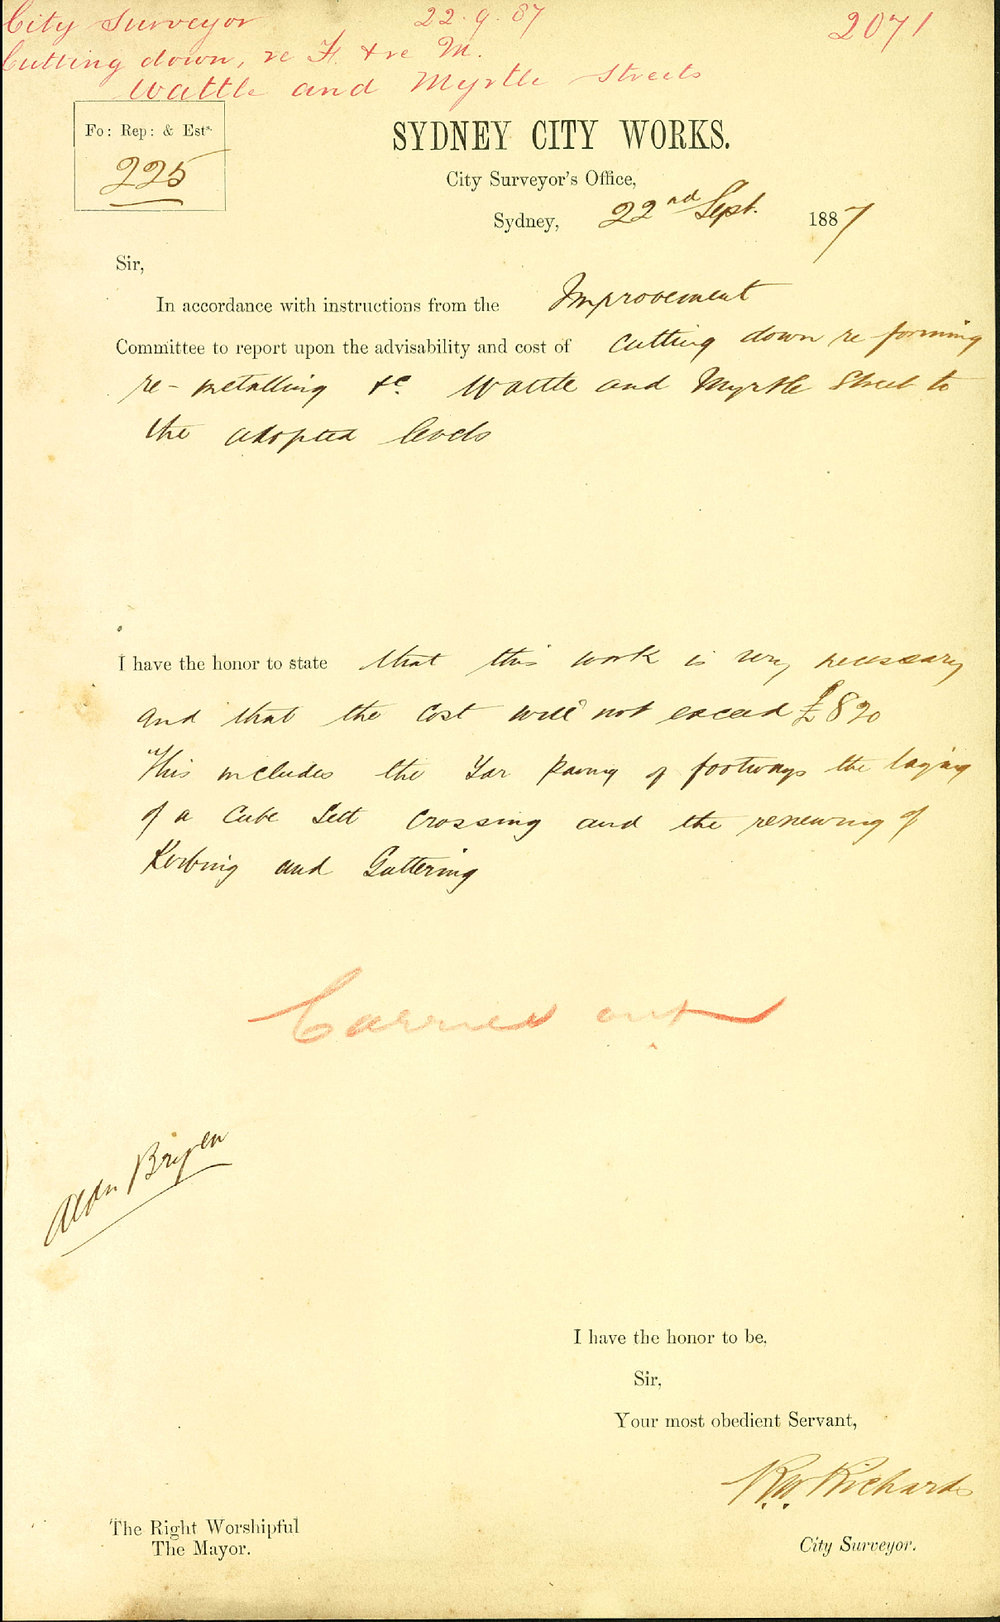 City Surveyor 22.9.87 2071
Cutting down, re F. & re M.
Wattle and Myrtle Streets
Fo: Rep: & Ests.
225
SYDNEY CITY WORKS.
City Surveyor's Office,
Sydney, 22nd Sept. 1887
Sir,
In accordance with instructions from the Improvement
Committee to report upon the advisability and cost of cutting down re forming
re-metalling &c. Wattle and Myrtle Street to
the adopted levels
I have the honor to state that this work is very necessary
and that the cost will not exceed £820
This includes the Tar Paving of footways the laying
of a Cube Sett Crossing and the renewing of
Kerbing and Guttering
Carried out
I have the honor to be,
Sir,
Your most obedient Servant,
R.W. Richards
The Right Worshipful
The Mayor.
City Surveyor.